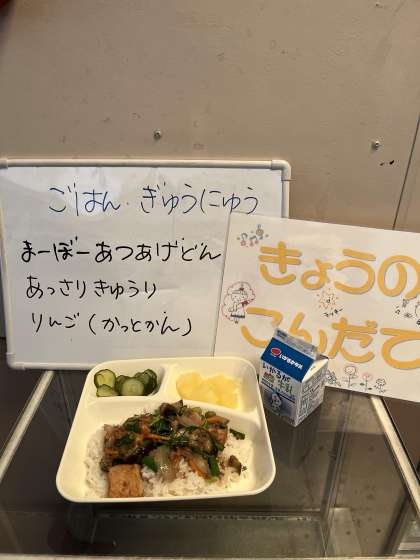 ごはん・ぎゅうにゅう
まーぼーあつあげどん
あっさりきゅうり
りんご(かっとかん)
きょうの
こんだて
いかるが